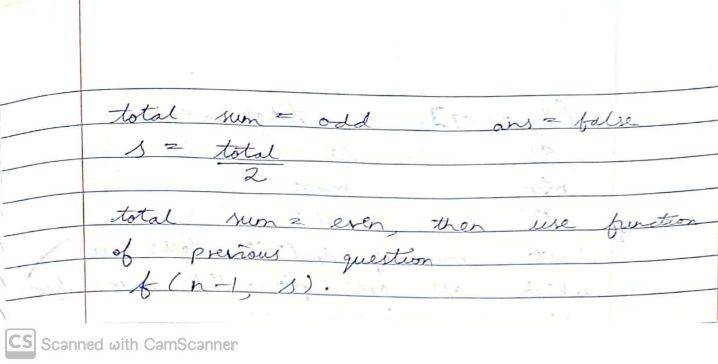 total sum = odd ans = false
s = total
2
total sum = even, then use function
of previous question
f(n-1, s).
CS Scanned with CamScanner